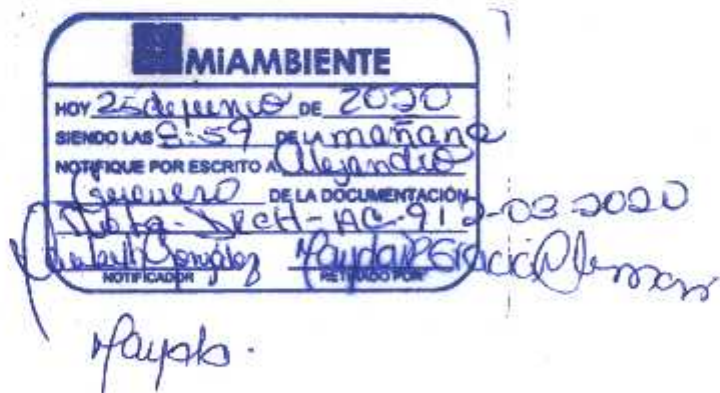 MiAMBIENTE
HOY 25 de junio DE 2020
SIENDO LAS 8:59 DE LA mañana
NOTIFIQUE POR ESCRITO A Alejandro
DE LA DOCUMENTACIÓN
Nota-DRCH-AC-912-03-2020
González Mayda
NOTIFICADOR RETIRADO POR
Mayda.